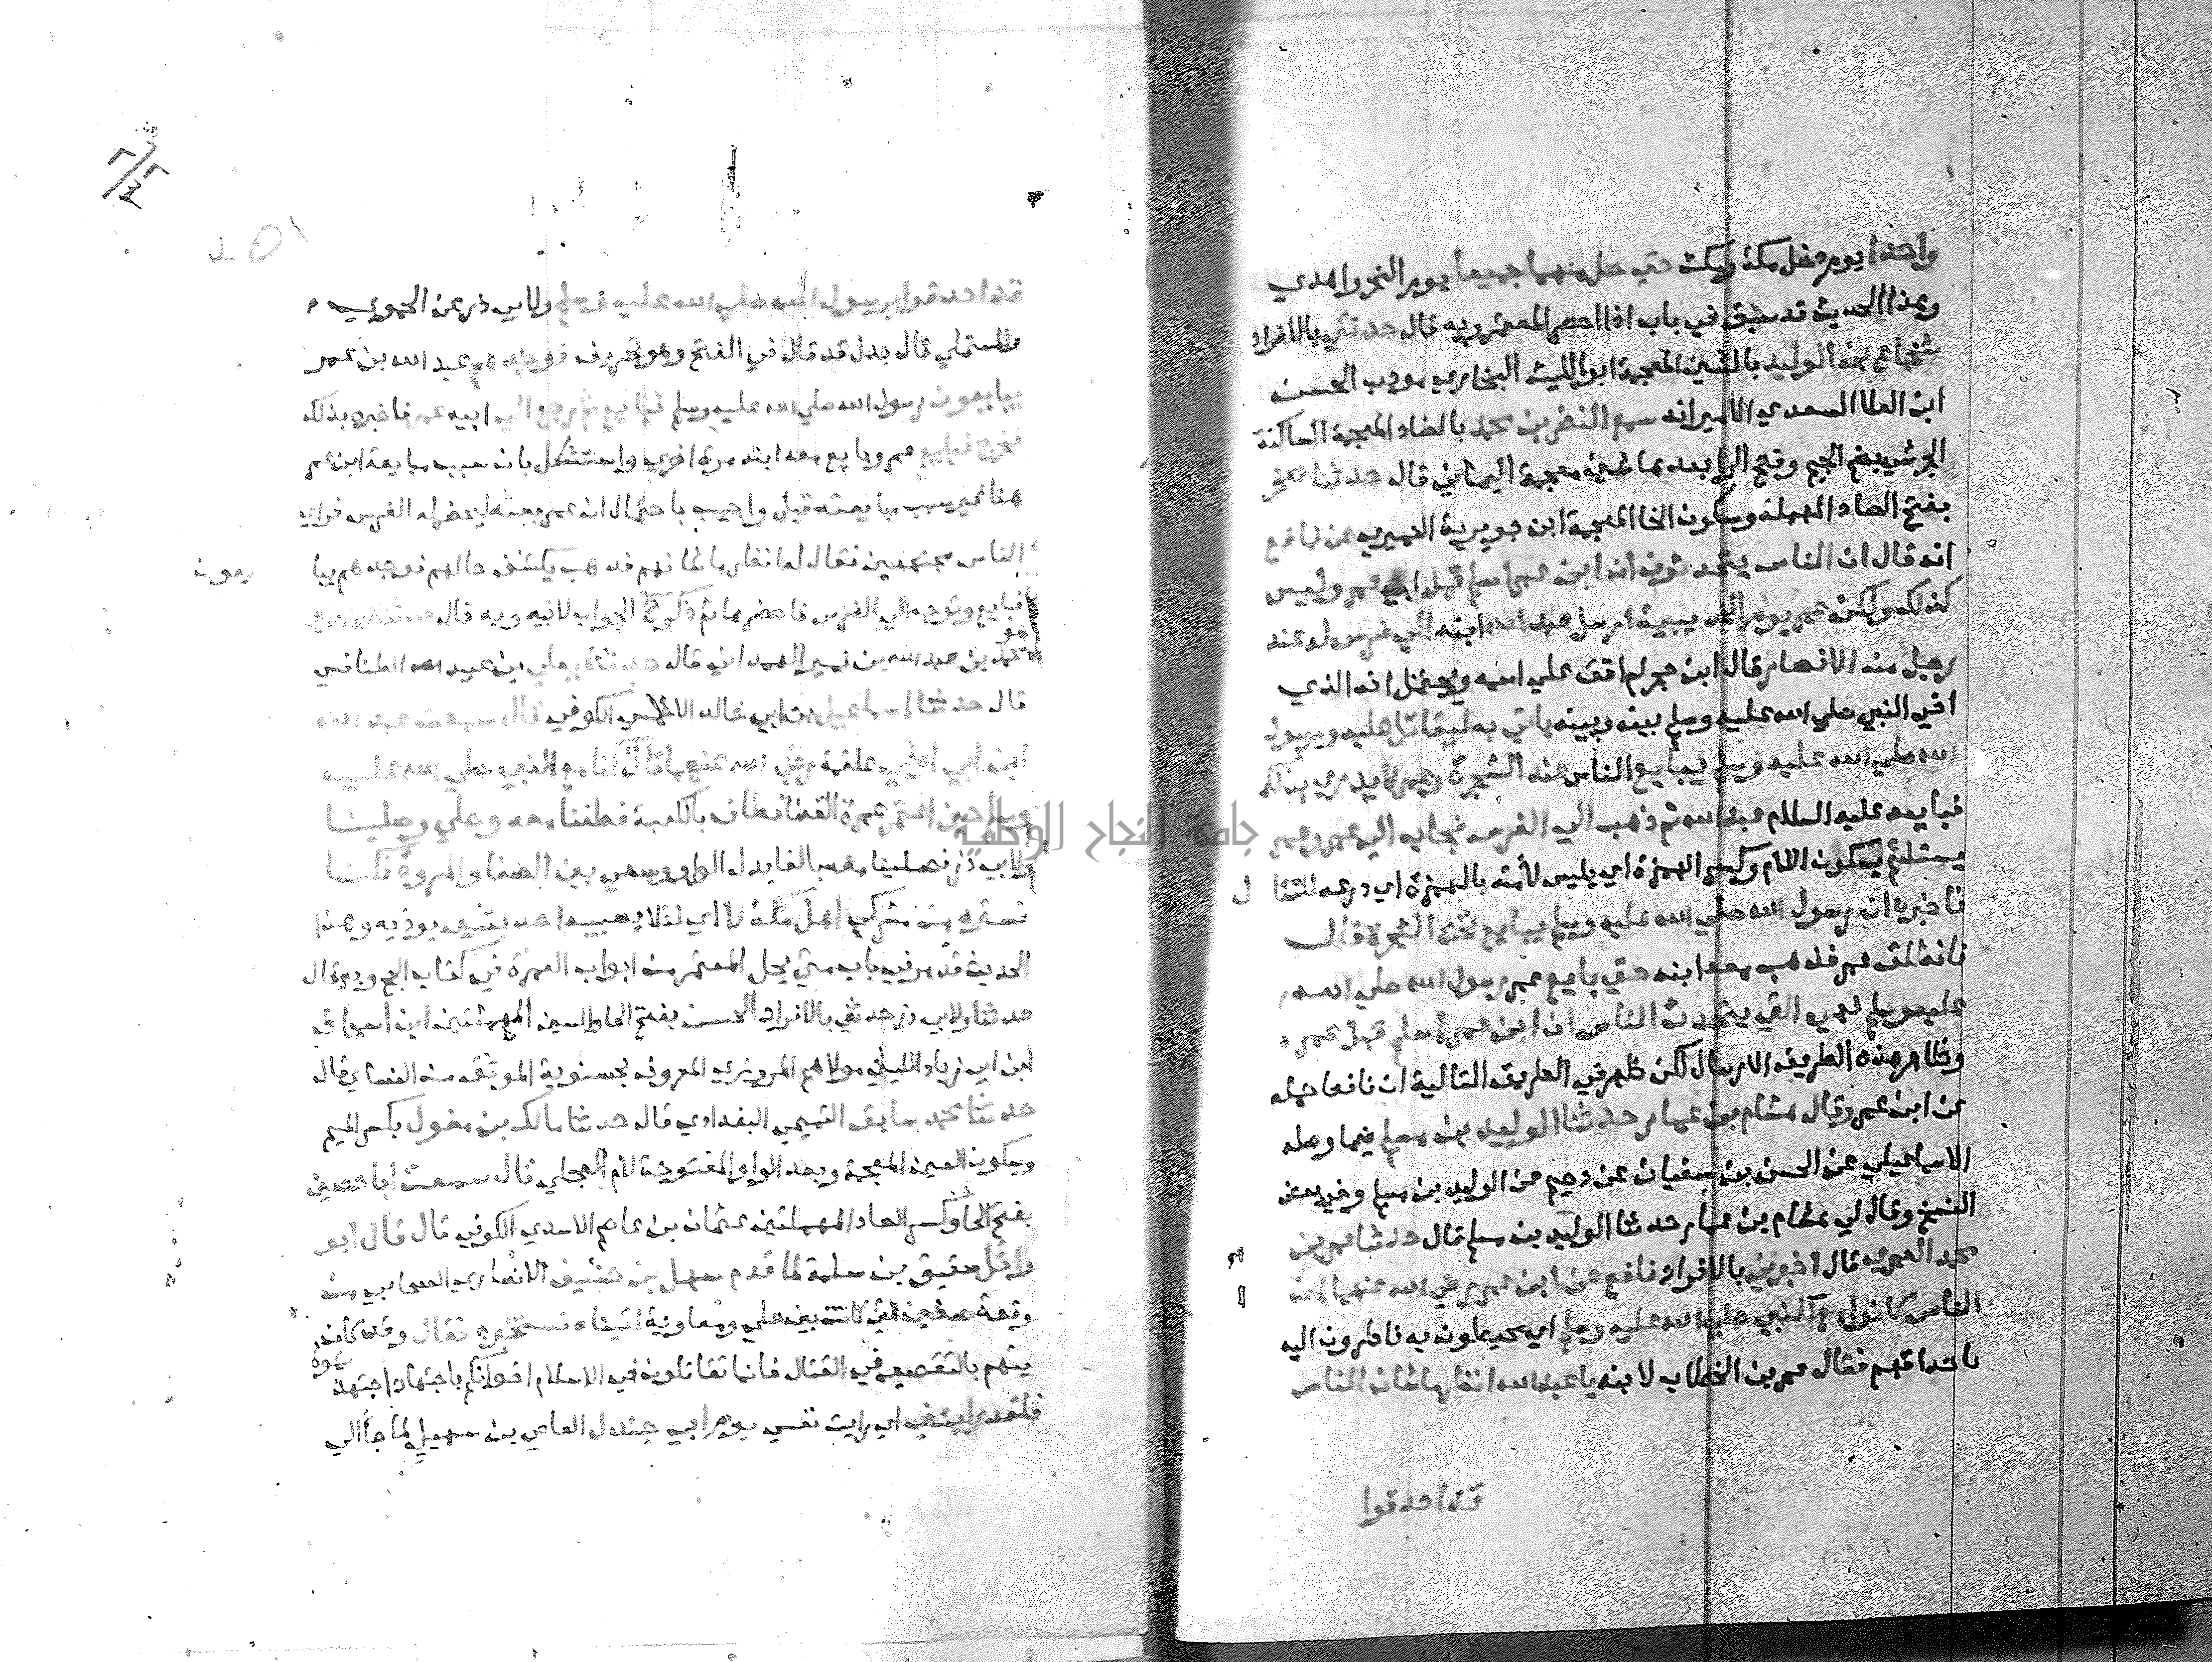 واحدا يوم دخل مكة ومكث حتى حل منهما جميعا يوم النحر واهدي
وهذا الحديث قد سبق في باب اذا احصر المعتمر وبه قال حدثني بالافراد
شجاع بن الوليد بالشين المعجمة ابو الليث البخاري مودب الحسن
ابن العلا السعدي الامير انه سمع النضر بن محمد بالضاد المعجمة الساكنة
الجرشي بضم الجيم وفتح الرا بعدها شين معجمة اليماني قال حدثنا صخر
بفتح الصاد المهملة وسكون الخا المعجمة ابن جويرية النميري عن نافع
انه قال ان الناس يتحدثون ان ابن عمر اسلم قبل ابيه عمر وليس
كذلك ولكن عمر يوم الحديبية ارسل عبد الله ابنه الي فرس له عند
رجل من الانصار قال ابن حجر لم اقف علي اسمه ويحتمل انه الذي
اخي النبي صلي الله عليه وسلم بينه وبينه ياتي به ليقاتل عليه ورسول
الله صلي الله عليه وسلم يبايع الناس عند الشجرة وعمر لا يدري بذلك
فبايعه عليه السلام عبد الله ثم ذهب الي الفرس فجا به الي عمر وعمر
يستلئم بسكون اللام وكسر الهمزة اي يلبس لأمته بالهمزة اي درعه للقتا ل
فاخبره ان رسول الله صلي الله عليه وسلم يبايع تحت الشجرة قال
فانطلق عمر فذهب معه ابنه حتي بايع عمر رسول الله صلي الله
عليه وسلم فهي التي يتحدث الناس ان ابن عمر اسلم قبل عمر
وظاهر هذه الطريق الارسال لكن ظهر في الطريق التالية ان نافعا حمله
عن ابن عمر وقال هشام بن عمار حدثنا الوليد بن مسلم فيما وصله
الاسماعيلي عن الحسن بن سفيان عن دحيم عن الوليد بن مسلم وفي بعض
النسخ وقال لي هشام بن عمار حدثنا الوليد بن مسلم قال حدثنا عمر بن
محمد العمري قال اخبرني بالافراد نافع عن ابن عمر رضي الله عنهما ان
الناس كانوا مع النبي صلي الله عليه وسلم اي محيطون به ناظرون اليه
باحداقهم فقال عمر بن الخطاب لابنه يا عبد الله انظر ما شان الناس
قد احدقوا
قد احدقوا برسول الله صلي الله عليه وسلم ولابي ذر عن الحموي
والمستملي قال بدل قد قال في الفتح وهو تحريف فوجدهم عبد الله بن عمر
يبايعون رسول الله صلي الله عليه وسلم فبايع ثم رجع الي ابيه عمر فاخبره بذلك
فخرج فبايع عمر وبايع معه ابنه مرة اخري واستشكل بان سبب مبايعة ابن عمر
هنا غير سبب مبايعته قبل واجيب باحتمال ان عمر بعثه ليحضر له الفرس فراي
الناس مجتمعين فقال له انظر ما شانهم فذهب يكشف حالهم فوجدهم يبا يعون
فبايع وتوجه الي الفرس فاحضرها ثم ذكر الجواب لابيه وبه قال حدثنا ابن نمير
هو
محمد بن عبد الله بن نمير الهمداني قال حدثنا يعلي بن عبيد الله الطنافسي
قال حدثنا اسماعيل بن ابي خالد الاحمسي الكوفي قال سمعت عبد الله
ابن ابي اوفي علقمة رضي الله عنهما قال كنا مع النبي صلي الله عليه
وسلم حين اعتمر عمرة القضا فطاف بالكعبة فطفنا معه وصلي وصلينا
ولابي ذر فصلينا معه بالفا بدل الواو وسعي بين الصفا والمروة فكنا
نستره من مشركي اهل مكة لا اي لئلا يصيبه احد بشيء يوذيه وهذا
الحديث قد مر في باب متي يحل المعتمر من ابواب العمرة في كتاب الحج وبه قال
حدثنا ولابي ذر حدثني بالافراد الحسن بفتح الحا والسين المهملتين ابن اسحاق
ابن ابي زياد الليثي مولاهم المروزي المعروف بحسنوية الموثق من النساي قال
حدثنا محمد بن سابق التميمي البغدادي قال حدثنا مالك بن مغول بكسر الميم
وسكون الغين المعجمة وبعد الواو المفتوحة لام البجلي قال سمعت ابا حصين
بفتح الحا وكسر الصاد المهملتين عثمان بن عاصم الاسدي الكوفي قال قال ابو
وائل شقيق بن سلمة لما قدم سهل بن حنيف الانصاري الصحابي من
وقعة صفين التي كانت بين علي ومعاوية اتيناه نستخبره فقال وقد كان
يتهم بالتقصير في القتال فانما تقاتلون في الاسلام اخوانكم باجتهاد اجتهد تموه
فلقد رايتني اي رايت نفسي يوم ابي جندل العاص بن سهيل لما جا الي
جامعة النجاح الوطنية